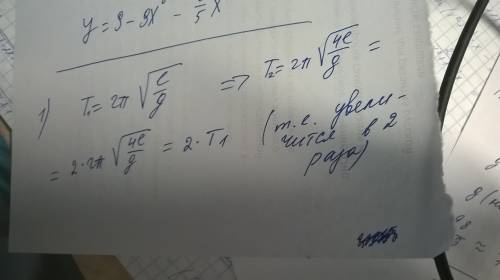 y = 9 - 9x - 2/5 x
1) T₁ = 2π √(ℓ/g) => T₂ = 2π √(4ℓ/g) =
= 2·2π √(4ℓ/g) = 2·T₁ (т.е. увели-
чится в 2
раза)